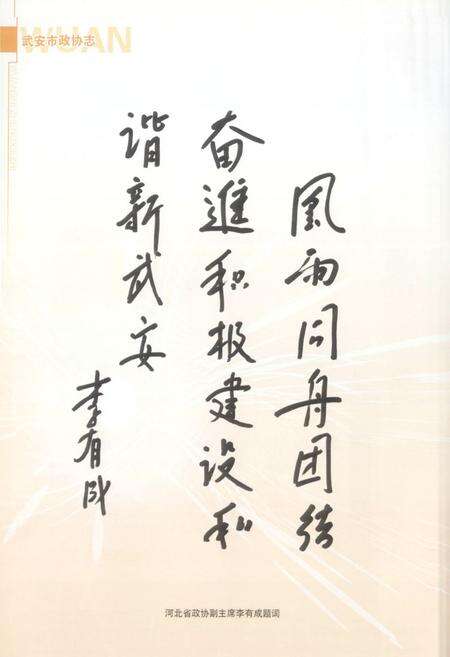 WUAN
武安市政协志
風雨同舟团结
奋進积极建设和
谐新武安
李有成
河北省政协副主席李有成题词